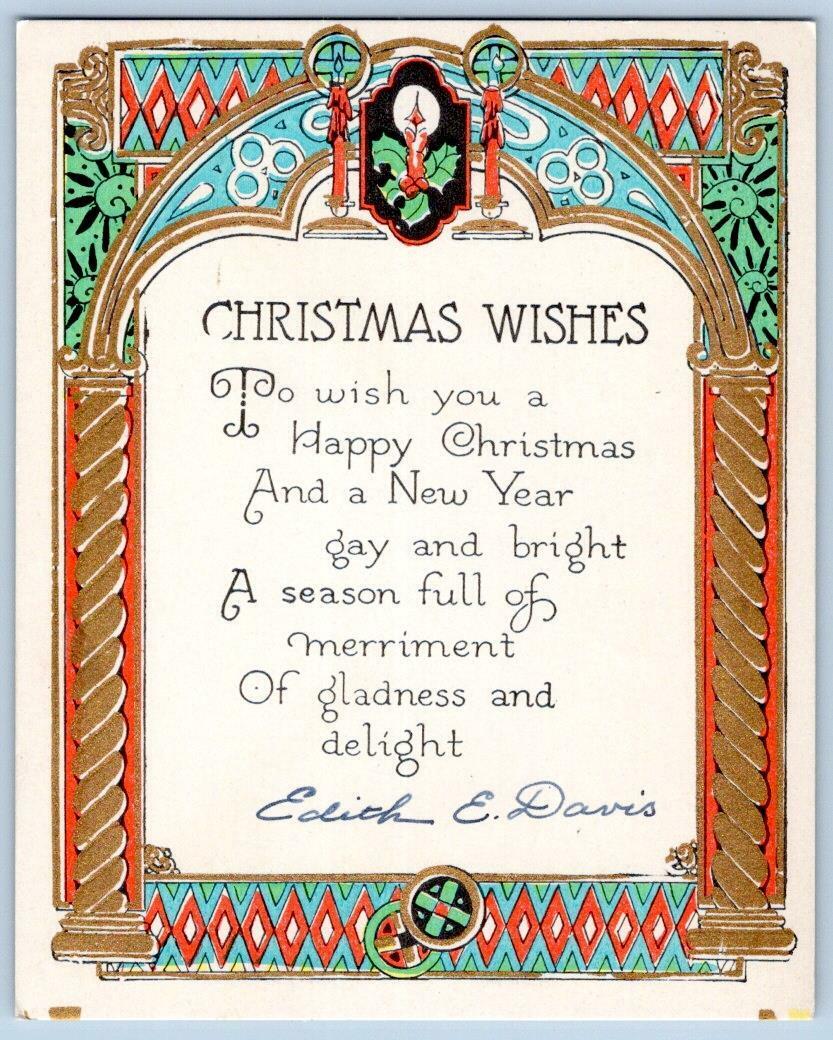 CHRISTMAS WISHES
To wish you a
Happy Christmas
And a New Year
gay and bright
A season full of
merriment
Of gladness and
delight
Edith E. Davis